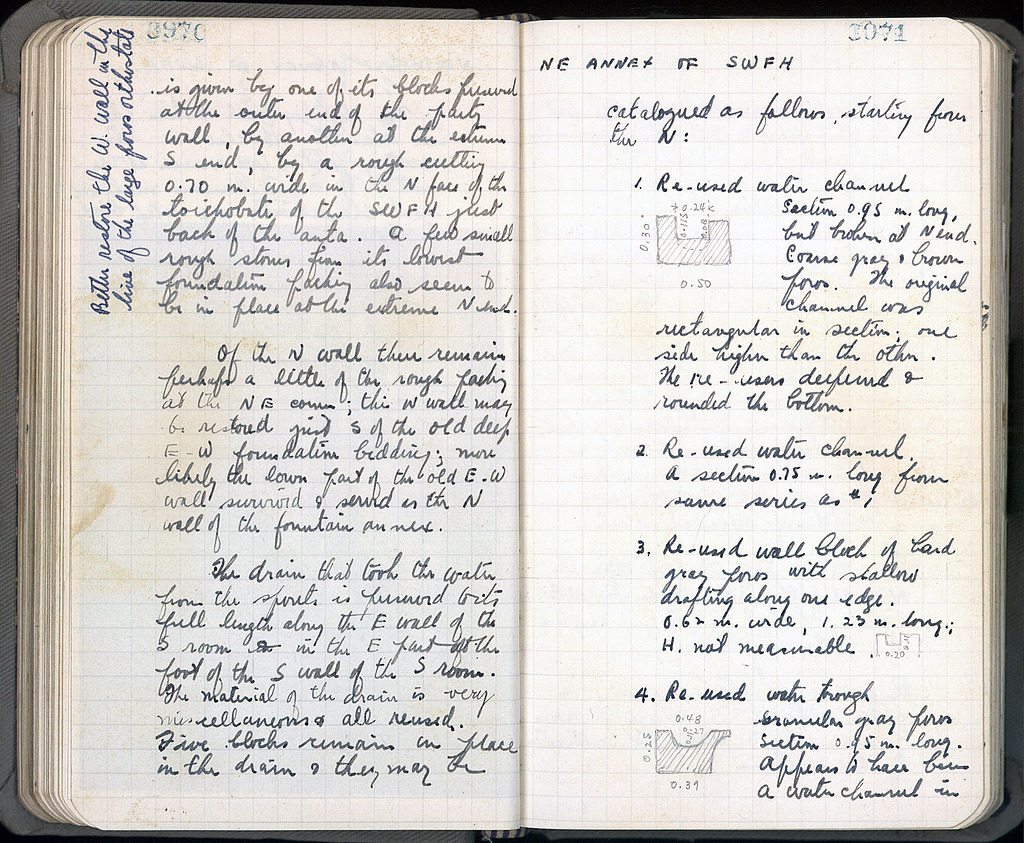 3970
Better restore the W. wall in the
line of the large poros orthostate
is given by one of its blocks preserved
at the outer end of the party
wall, by another at the extreme
S end, by a rough cutting
0.70 m. wide in the N face of the
toichobate of the SWFH just
back of the anta. A few small
rough stones from its lowest
foundation packing also seem to
be in place at the extreme N end.
Of the N wall there remains
perhaps a little of the rough packing
at the NE corner; this N wall may
be restored just S of the old deep
E-W foundation bedding; more
likely the lower part of the old E-W
wall survived & served as the N
wall of the fountain annex.
The drain that took the water
from the spouts is preserved to its
full length along the E wall of the
S room & in the E part at the
foot of the S wall of the S room.
The material of the drain is very
miscellaneous & all reused.
Five blocks remain in place
in the drain & they may be
3971
NE ANNEX OF SWFH
catalogued as follows, starting from
the N:
1. Re-used water channel
0.24
0.115
0.08
0.30
0.50
Section 0.95 m. long,
but broken at N end.
Coarse gray & brown
poros. The original
channel was
rectangular in section; one
side higher than the other.
The re-users deepened &
rounded the bottom.
2. Re-used water channel.
A section 0.75 m. long from
same series as #1
3. Re-used wall block of hard
gray poros with shallow
drafting along one edge.
0.62 m. wide, 1.23 m. long;
H. not measurable.
0.20
4. Re-used water trough
0.48
0.27
0.25
0.39
Granular gray poros
Section 0.95 m. long.
Appears to have been
a water channel in